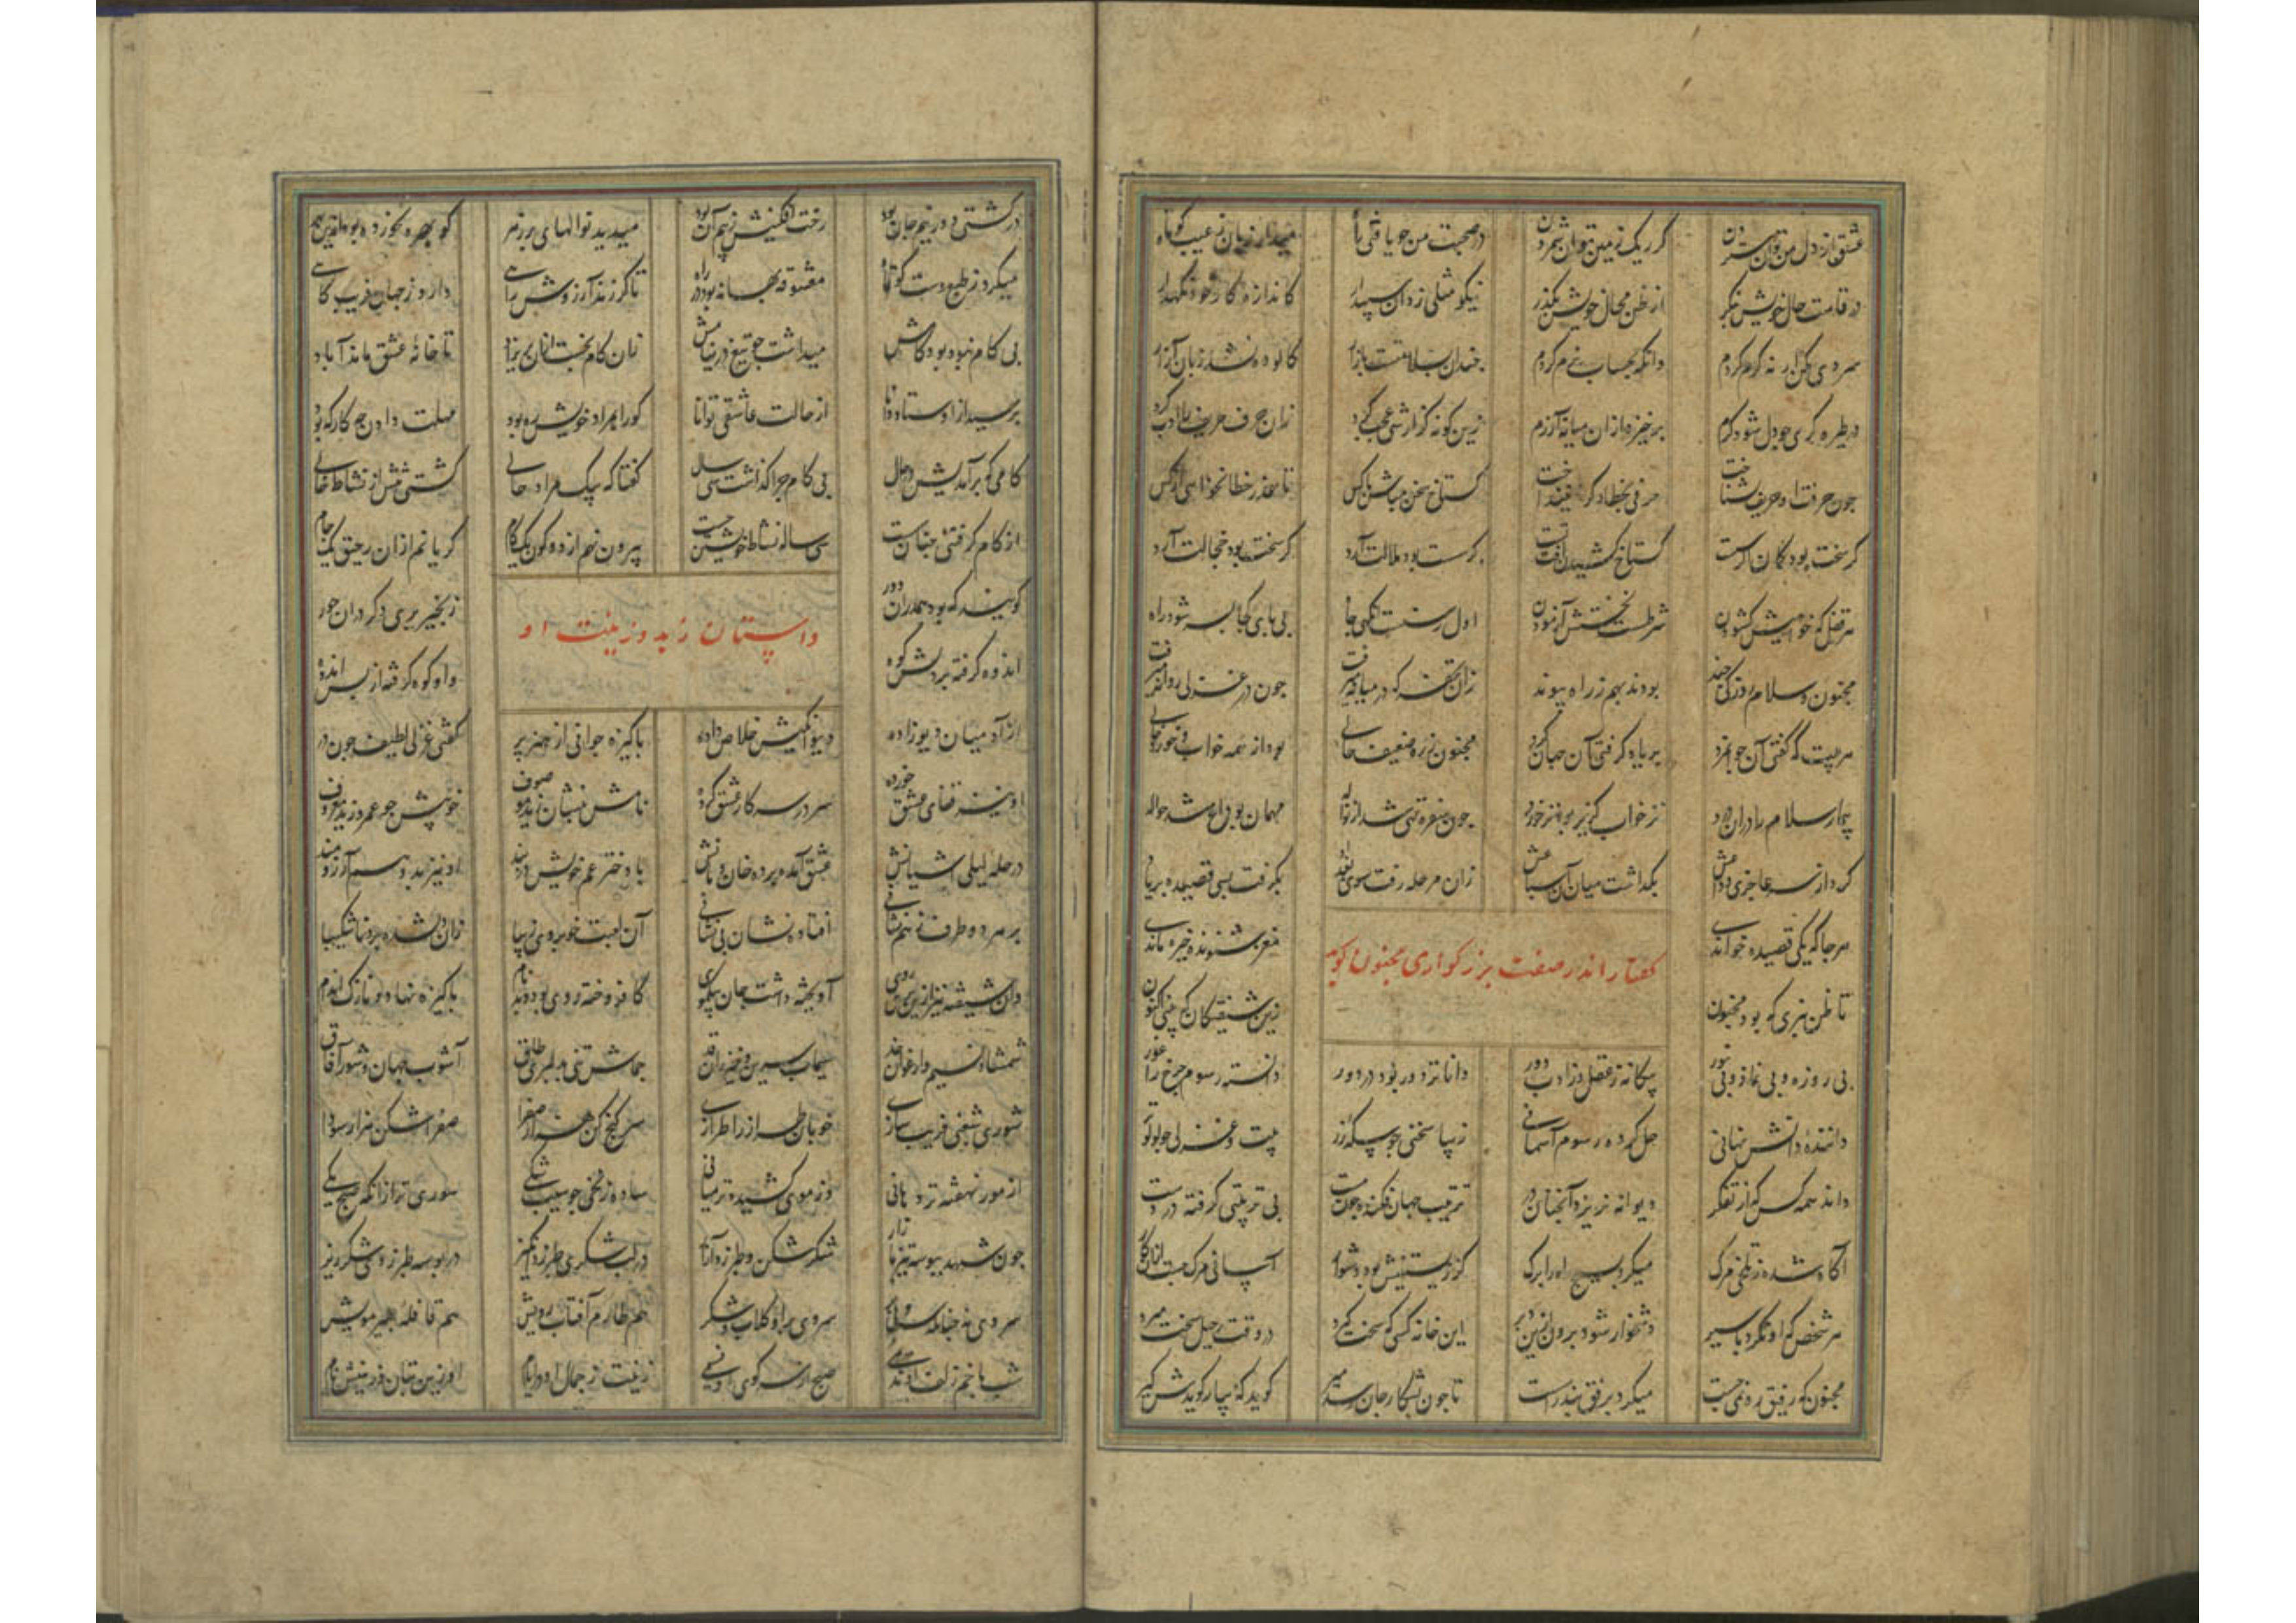 عشق از دل من توان ستردن گر ریگ زمین توان شمردن در صحبت من چو یافتی راه میدار زبان ز عیب کوتاه
در قامت حال خویش بنگر از طعن محال خویش بگذر نیکو مثلی زد آن سپهدار کاندازه کار خود نگهدار
سردی مکن ار نه گرم کردم وانگه بحساب نرم کردم چندان بسلامتت بازار کالوده نشد زبان آزار
در طیره گری چو دل شود گرم برخیزد از آن میانه آزرم زین گونه گزارشی عجب کرد زان حرف حریف را ادب کرد
چون حرفت او حریف بشناخت حرفی بخطا دگر نینداخت گستاخ سخن مباش با کس تا عذر خطا نخواهی از پس
گر سخت بود کمان و گر سست گستاخ کشیدن آفت تست گر سست بود ملالت آرد گر سخت بود خجالت آرد
هر قفل که خواهیش گشودن شرطست نخستش آزمودن
مجنون و سلام روزکی چند بودند بهم ز راه پیوند زان تحفه که در میانه میرفت چون در غزلی روانه میرفت
هر بیت که گفتی آن جوانمرد بر یاد گرفتی آن جهان گرد مجنون ز ره ضعیف حالی بود از همه خواب و خورد خالی
بیچاره سلام را در آن درد نز خواب گزیر بود و نز خورد چون سفره تهی شد از نواله مهمان بوداع شد حواله
کرد از سر عاجزی وداعش بگذاشت میان آن سباعش زان مرحله رفت سوی بغداد بگرفت بسی قصیده بر یاد
هر جا که یکی قصیده خواندی مغز شنونده خیره ماندی
گفتار اندر صفت بزرگواری مجنون گوید
تا ظن نبری که بود مجنون زین شیفتگان که بینی اکنون
بی روزه و بی نماز و بی نور بیگانه ز عقل وز ادب دور دانا تر دور بود در دور دانسته رسوم چرخ را غور
داننده دانش نهانی حل کرده رسوم آسمانی زیبا سخنی چو سکه زر بیت و غزلی چو لولو تر
داند همه کس که از تفکر دیوانه نریزد آنچنان در ترتیب جهان فکنده چون مست بی ترتیبتی گرفته در دست
آگاه شده ز تلخی مرگ میکرد بسیج راه را برگ کز زیستنش بود دشوار آسانی مرگ جست از آن کار
هر شخص که او نگردد با سیم دشخوار شود برون ازین بیم این خانه کسی که سخت گیرد در وقت رحیل سخت میرد
مجنون که رفیق ره نمی جست میکرد برفق بند را سست تا چون بشکار جان رسد میر گوید که بیار گویدش گیر
در کشتی و در نیم جان بود رخت افکنیش ز بیم آن بود میدید نوالهای
میکرد ز طبع دست کوتاه معشوقه بهانه بود در راه تا گر رسد آرزوش رایی دارد ز جهان فریب کایی
بی کام نبود بود کامش میداشت چو تیغ در نیامش زان کام نجست از آن پریزاد تا خانه عشق ماند آباد
پرسید از اوستاد دانا از حالت عاشقی توانا کو را بمراد خویش ره بود مهلت دادن چه کارگه بود
کامی که برآمدیش در حال بی کام چرا گذاشت سی سال گفتا که بیک مراد حالی گشتی مثل از نشاط خالی
از کام گرفتنی چنان سست سی ساله نشاط خویشتن جست گر یابم از آن رحیق یک جام بیرون نهم از دو کون یک گام
داستان زید و زینب او
گویند که بود هم در آن دور زنجیر بری دگر در آن جور
اندوه گرفته بر دلش کوه واو کوه گرفته از بس اندوه
از آدمیان دیو زاده دیوانگیش خلاص داده پاکیزه جوانی از هنر پر گفتی غزلی لطیف چون در
او نیز قفای عشق خورده سر در سر کار عشق کرده نامش بنشان زید موصوف خویش چو عمرو زید معروف
در حله لیلی آشیانش عشق آمده برده خان و مانش با دختر عم خویش در بند او نیز بدو هم آرزومند
بر مرده طرف ز هم نشانی افتاده نشان بی نشانی آن لعبت خوبروی زیبا زان شده بدو ناشکیبا
وان شیفته نیز از پری روی آویخته داشت جان بیک موی کافروخته روی بود و بدنام پاکیزه نهاد و نازک اندام
شمشاد نسیم و ارغوان خد سیماب سرین و خیزران قد جماش تنی بدلبری طاق آشوب جهان و شور آفاق
شوری شغبی فریب سازی خوبان طراز را طرازی سرکه کن هزار صفرا صفرا شکن هزار سودا
از مور نهفته تر دهانی وز موی کشیده تر میانی ساده زنخی چو سیب شکی سوری تر از آنکه صبح یکی
چون شهد ببوسه تیز بازار شکر شکن و طبرزد آزار در لب شکری طبرزد انگیز در بوسه طبرزدی شکر ریز
سروی نه چنانکه سرو سروی برابر گلاب و شکر هم طارم آفتاب رویش هم قافله عبیر مویش
شب با خم زلف او صبح از سر کوی او نسیمی زینت ز جمال او در ایام او زین جهان و زینبش نام